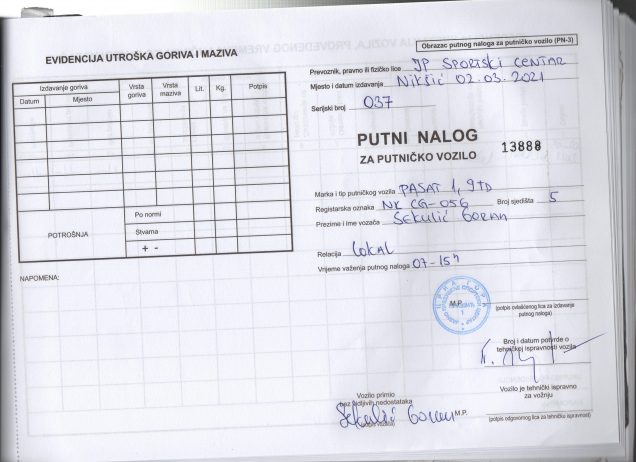 EVIDENCIJA UTROŠKA GORIVA I MAZIVA
Izdavanje goriva
Datum
Mjesto
Vrsta goriva
Vrsta maziva
Lit.
Kg.
Potpis
POTROŠNJA
Po normi
Stvarna
+ -
NAPOMENA:
Obrazac putnog naloga za putničko vozilo (PN-3)
Prevoznik, pravno ili fizičko lice JP SPORTSKI CENTAR
Mjesto i datum izdavanja Nikšić 02.03.2021
Serijski broj 037
PUTNI NALOG
ZA PUTNIČKO VOZILO
13888
Marka i tip putničkog vozila PASAT 1,9TD
Registarska oznaka NK CG-056 Broj sjedišta 5
Prezime i ime vozača SEKULIĆ GORAN
Relacija LOKAL
Vrijeme važenja putnog naloga 07-15h
M.P.
(potpis ovlašćenog lica za izdavanje
putnog naloga)
Broj i datum potvrde o
tehničkoj ispravnosti vozila
Vozilo je tehnički ispravno
za vožnju
M.P.
(potpis odgovornog lica za tehničku ispravnost)
Vozilo primio
bez vidljivih nedostataka
Sekulić Goran